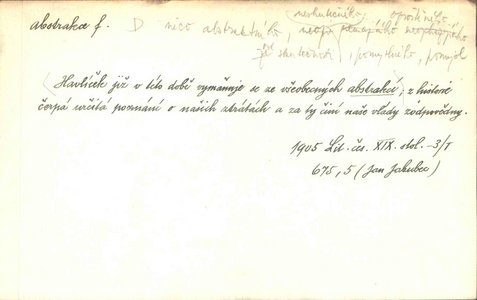 neskutečného, oproštěného
abstrakce f. D něco abstraktního,
od skutečnosti, pomyslného, pomysl
Havlíček již v této době vymaňuje se ze všeobecných abstrakcí; z historie
čerpá určitá poznání o našich ztrátách a za ty činí naše vlády zodpovědny.
1905 Lit. čes. XIX. stol. -3/I
675, 5 (Jan Jakubec)